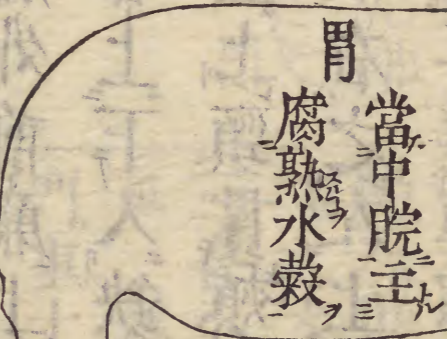 胃
當中脘主
腐熟水穀